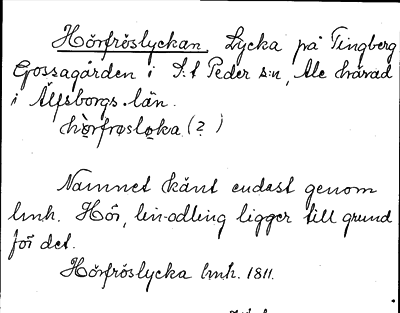 Hörfröslyckan. Lycka på Tingberg
Gossagården i S:t Peder s:n, Ale härad
i Älfsborgs län.
hòrfrøsloka (?)
Namnet känt endast genom
lmh. Hör, lin-odling ligger till grund
för det.
Hörfröslycka lmh. 1811.